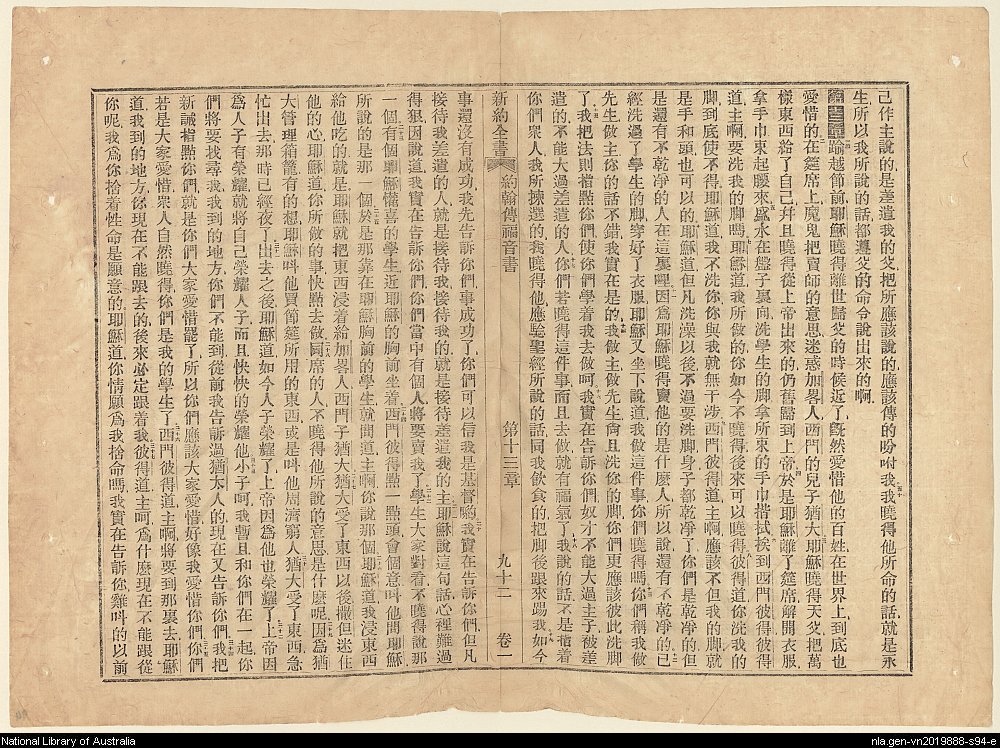 己作主說的是差遣我的父把所應該說的應該傳的吩咐我我曉得他所命的話就是永
生所以我所說的話都遵父的命令說出來的啊
第十三章踰越節前耶穌曉得離世歸父的時候近了旣然愛惜他的百姓在世界上到底也
愛惜的在筵席上魔鬼把賣師的意思迷惑加畧人西門的兒子猶大耶穌曉得天父把萬
樣東西給了自己幷且曉得從上帝出來的仍舊歸到上帝於是耶穌離了筵席解開衣服
拿手巾束起腰來盛水在盤子裏向洗學生的脚拿所束的手巾揩拭挨到西門彼得彼得
道主啊要洗我的脚嗎耶穌道我所做的你如今不曉得後來可以曉得彼得道你洗我的
脚到底使不得耶穌道我不洗你你與我就無干涉西門彼得道主啊應該不但我的脚就
是手和頭也可以的耶穌道但凡洗澡以後不過要洗脚身子都乾凈了你們是乾凈的但
是還有不乾凈的人在這裏哩因爲耶穌曉得賣他的是什麼人所以說還有不乾凈的已
經洗過了學生的脚穿好了衣服耶穌又坐下說道我做這件事你們曉得嗎你們稱我做
先生做主你的話不錯我實在是的我做主做先生尙且洗你的脚你們更應該彼此洗脚
了我把法則指點你們使你們學着我去做呵我實在告訴你們奴才不能大過主子被差
遣的不能大過差遣的人你們若曉得這件事而且去做就有福氣了我說的話不是指着
你們衆人我所揀選的我曉得他應驗聖經所說的話同我飲食的把脚後跟來踢我如今
新約全書 約翰傳福音書 第十三章 九十二 卷一
事還沒有成功我先告訴你們事成功了你們可以信我是基督喲我實在告訴你們但凡
接待我差遣的人就是接待我接待我的就是接待差遣我的主耶穌說這句話心裡難過
得狠因說道我實在告訴你們你們當中有個人將要賣我了學生大家對看不曉得說那
一個有個耶穌懽喜的學生近耶穌的胸前坐着西門彼得點一點頭會個意叫他問耶穌
所說的是那一個於是那靠在耶穌胸前的學生就問道主啊你說那個耶穌道我浸東西
給他吃的就是耶穌就把東西浸着給加畧人西門子猶大猶大受了東西以後撒但迷住
他的心耶穌道你所做的事快點去做同席的人不曉得他所說的意思是什麼呢因爲猶
大管理箱籠有的想耶穌叫他買節筵所用的東西或是叫他周濟窮人猶大受了東西急
忙出去那時已經夜了出去之後耶穌道如今人子榮耀了上帝因爲他也榮耀了上帝因
爲人子有榮耀就將自己榮耀人子而且快快的榮耀他小子呵我暫且和你們在一起你
們將要找尋我我到的地方你們不能到從前我告訴過猶太人的現在又告訴你們我把
新誡指點你們就是你們大家愛惜罷了所以你們應該大家愛惜好像我愛惜你們你們
若是大家愛惜衆人自然曉得你們是我的學生了西門彼得道主啊將要到那裏去耶穌
道我到的地方你現在不能跟去的後來必定跟着我彼得道主呵爲什麼現在不能跟從
你呢我爲你捨着性命是願意的耶穌道你情願爲我捨命嗎我實在告訴你雞叫的以前
National Library of Australia
nla.gen-vn2019888-s94-e